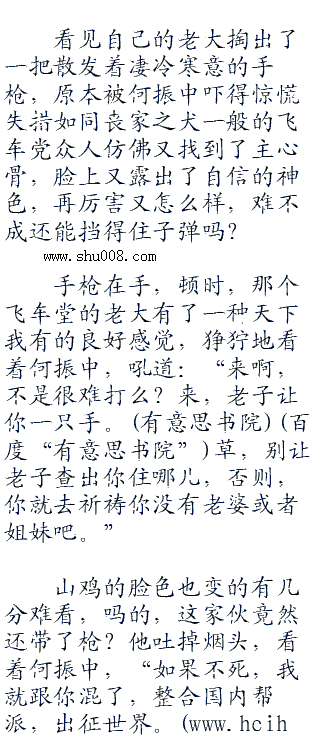 看见自己的老大掏出了
一把散发着凄冷寒意的手
枪，原本被何振中吓得惊慌
失措如同丧家之犬一般的飞
车党众人仿佛又找到了主心
骨，脸上又露出了自信的神
色，再厉害又怎么样，难不
成还能挡得住子弹吗？
www.shu008.com
手枪在手，顿时，那个
飞车堂的老大有了一种天下
我有的良好感觉，狰狞地看
着何振中，吼道：“来啊，
不是很难打么？来，老子让
你一只手。(有意思书院)(百
度“有意思书院”)草，别让
老子查出你住哪儿，否则，
你就去祈祷你没有老婆或者
姐妹吧。”
山鸡的脸色也变的有几
分难看，吗的，这家伙竟然
还带了枪？他吐掉烟头，看
着何振中，“如果不死，我
就跟你混了，整合国内帮
派，出征世界。(www.hcih